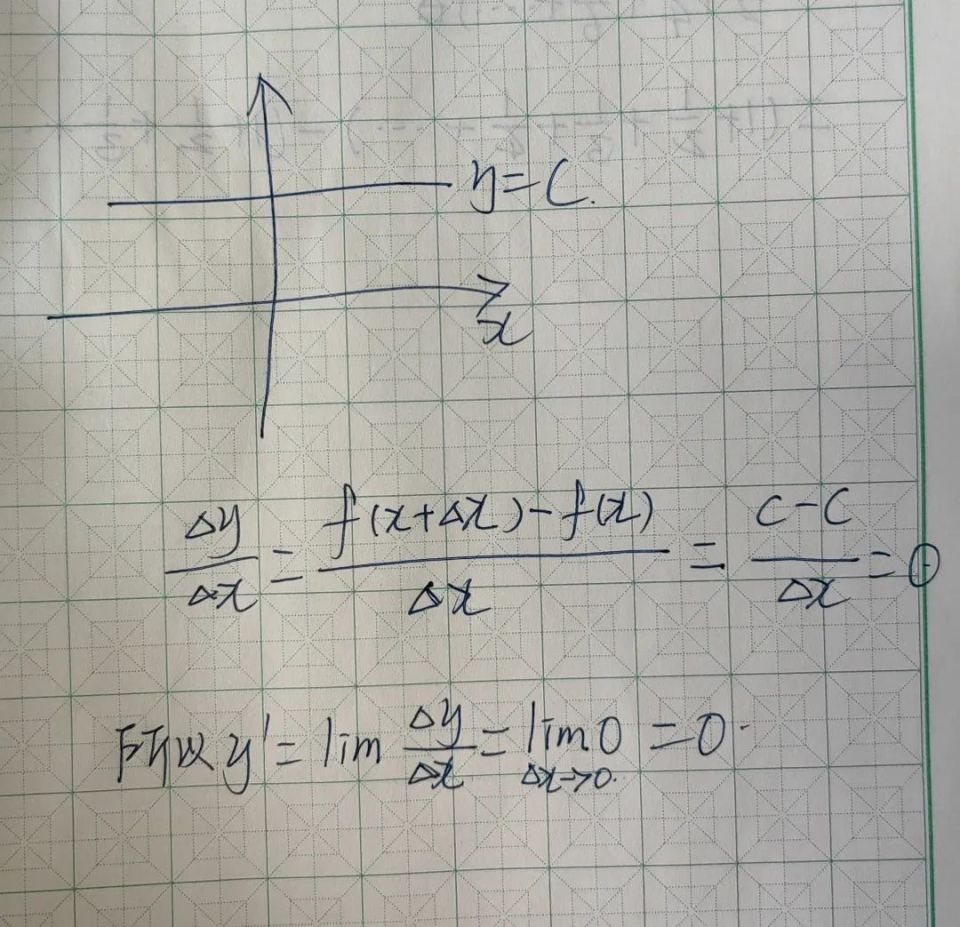 y=C.
x
Δy/Δx = f(x+Δx)-f(x)/Δx = C-C/Δx = 0
所以 y' = lim Δy/Δx = lim 0 Δx->0. = 0.